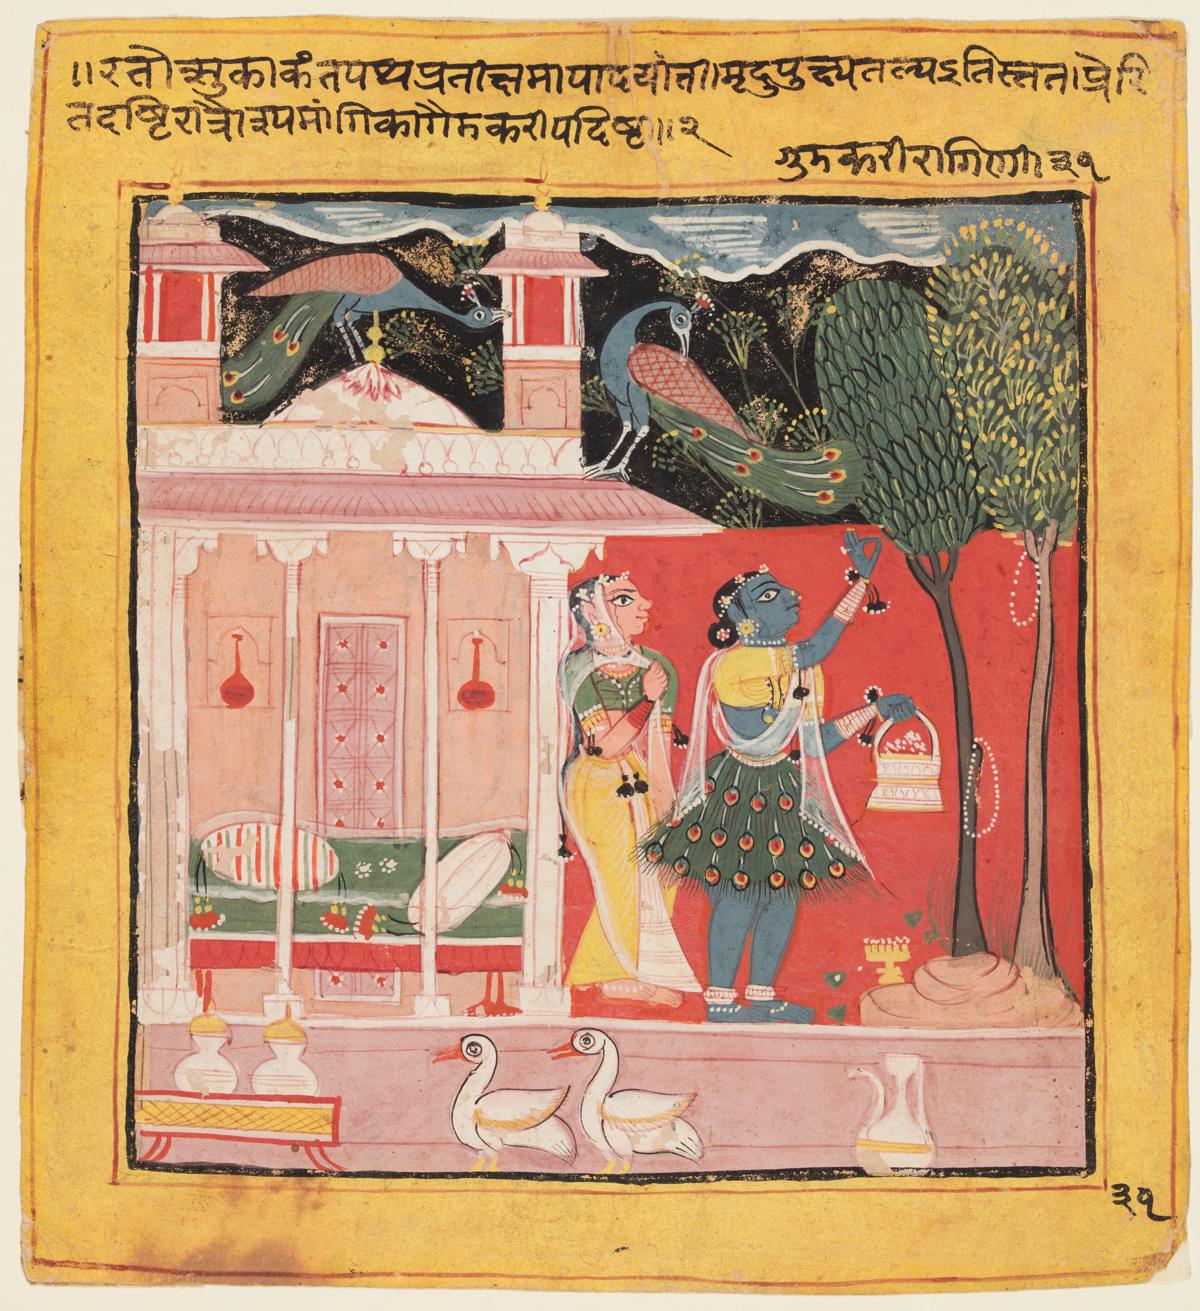 ॥रतोत्सुकाकंतपथप्रतीक्षमापादयंती॥मृदुपुष्पतल्पऽतिस्ततःप्रेरि
तदृष्टिरात्रा३पमांगिकागौडकरीपदिष्टा॥।२
गुडकरीरागिणी॥३१
३१